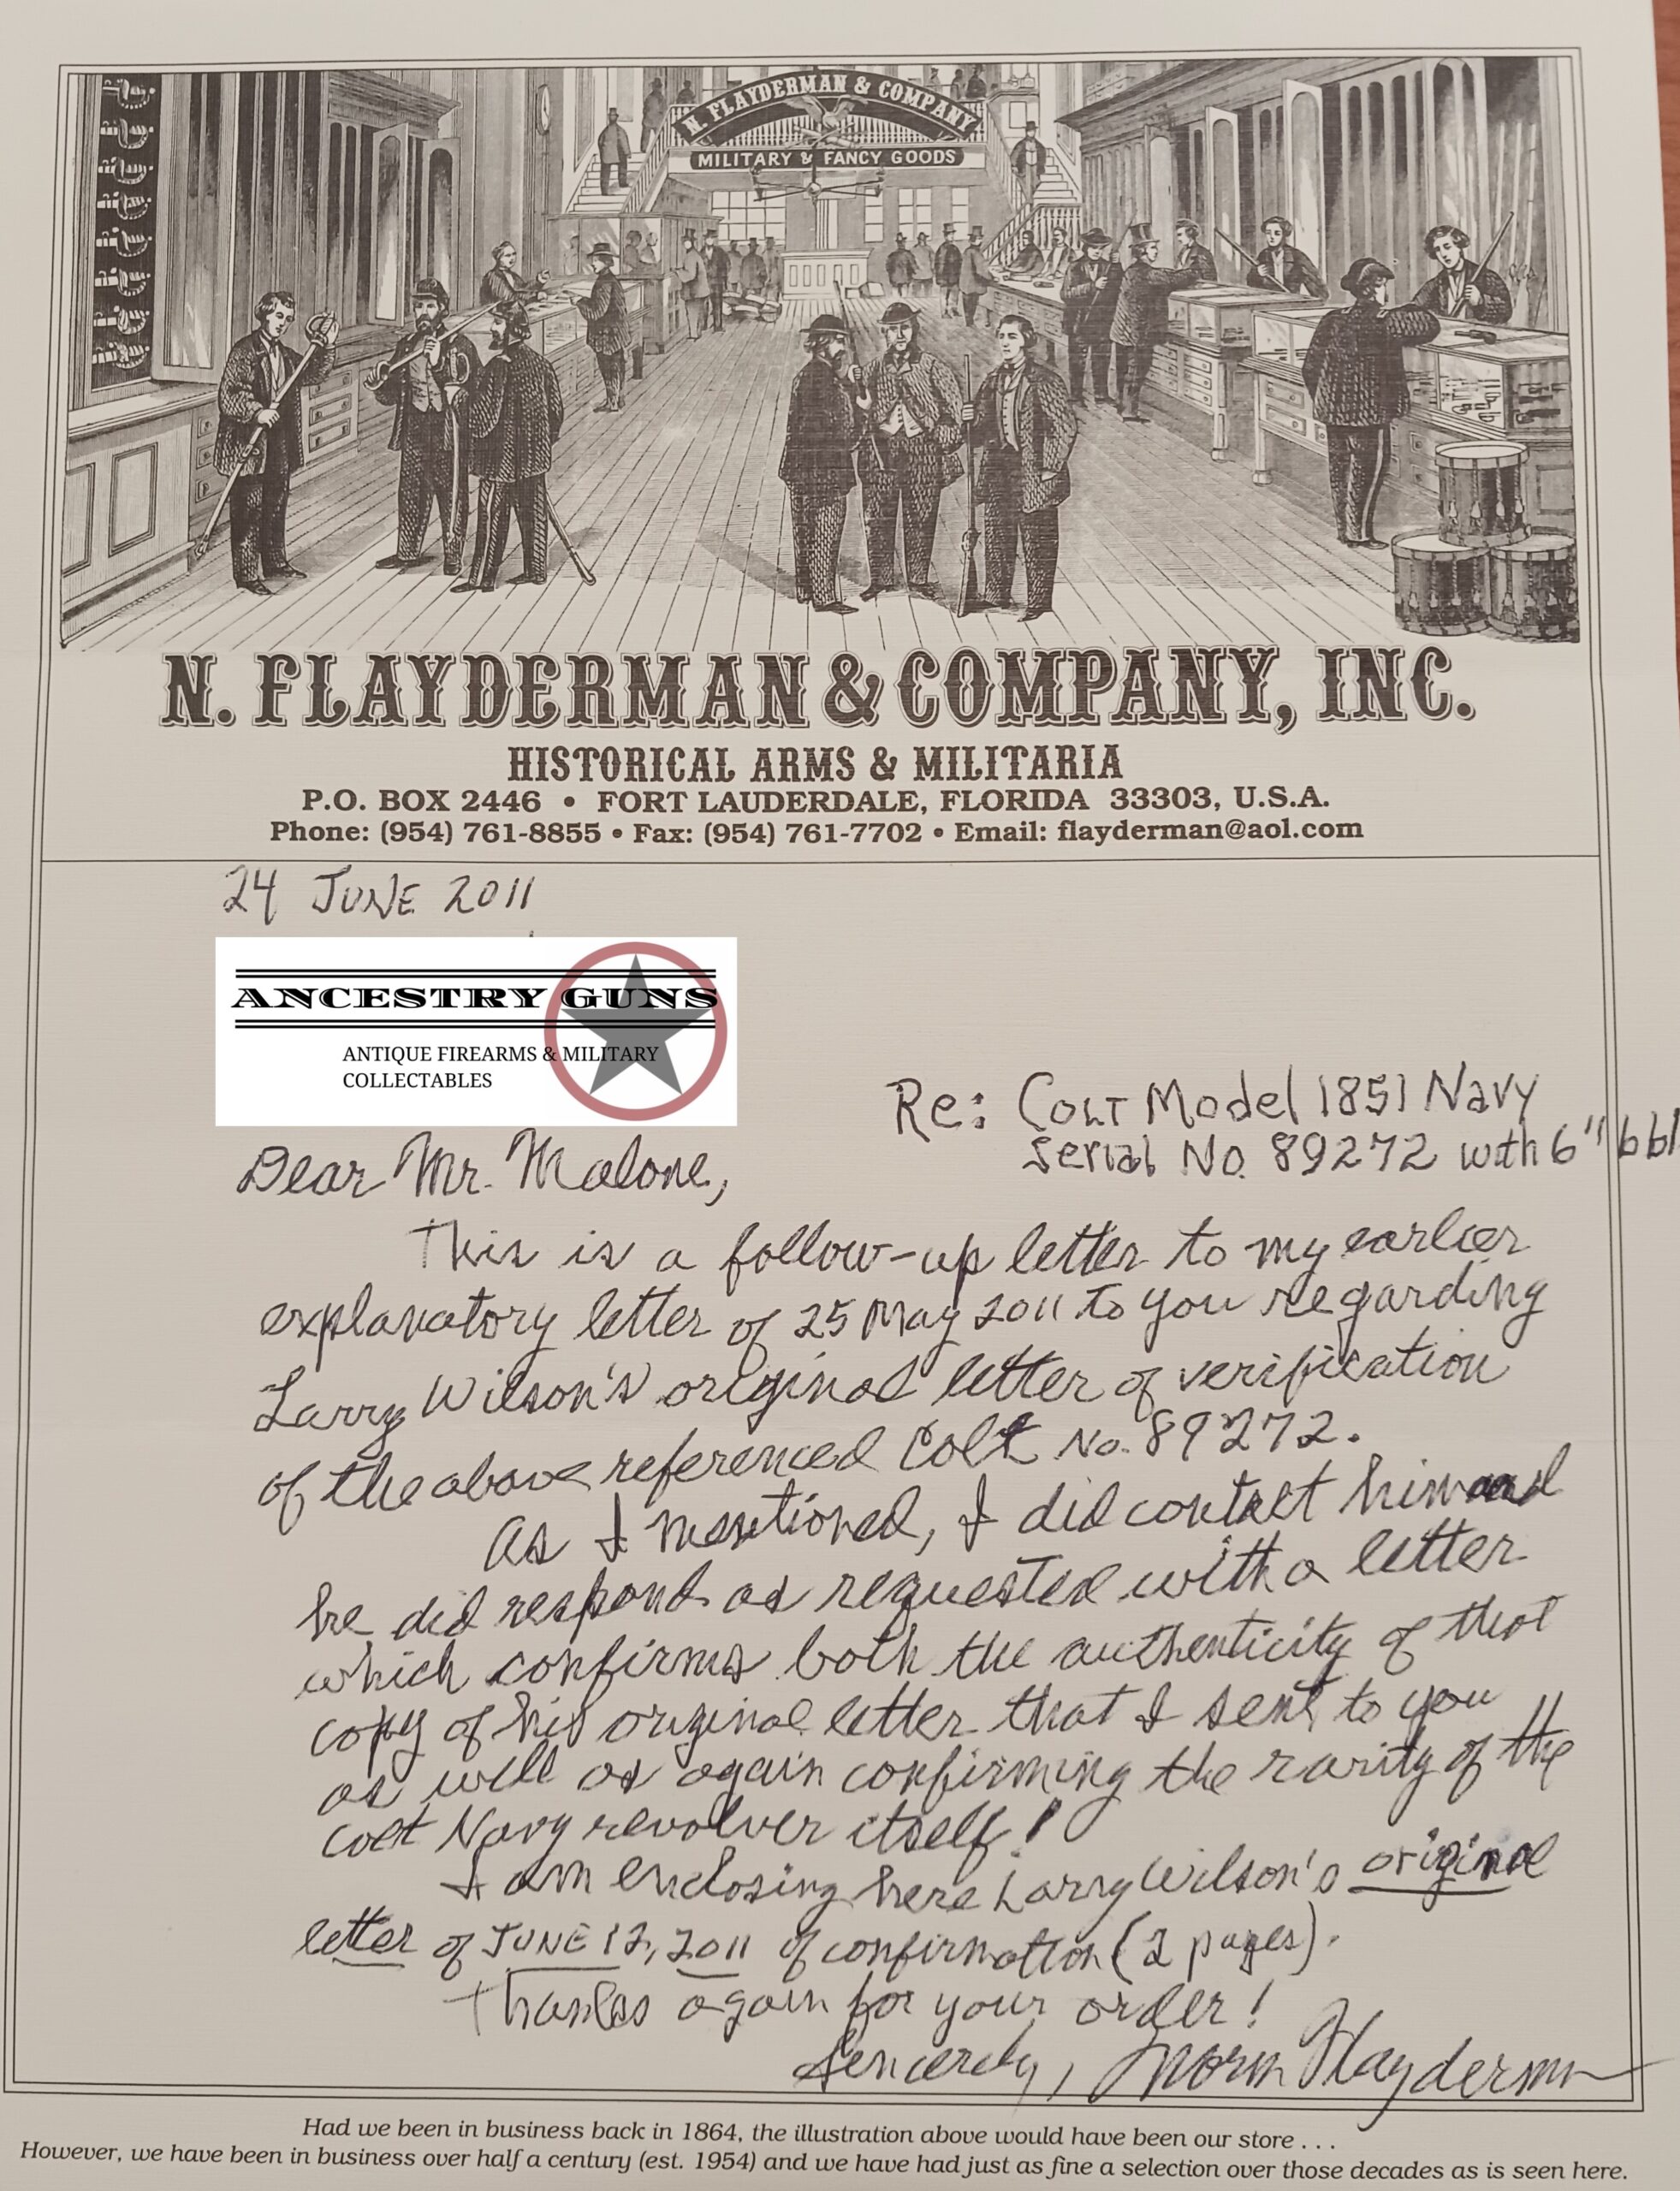 N. FLAYDERMAN & COMPANY
MILITARY & FANCY GOODS
N. FLAYDERMAN & COMPANY, INC.
HISTORICAL ARMS & MILITARIA
P.O. BOX 2446 • FORT LAUDERDALE, FLORIDA 33303, U.S.A.
Phone: (954) 761-8855 • Fax: (954) 761-7702 • Email: flayderman@aol.com
24 JUNE 2011
ANCESTRY GUNS
ANTIQUE FIREARMS & MILITARY
COLLECTABLES
Re: COLT Model 1851 Navy
Serial No. 89272 with 6" bbl
Dear Mr. Malone,
This is a follow-up letter to my earlier
explanatory letter of 25 May 2011 to you regarding
Larry Wilson's original letter of verification
of the above referenced Colt No. 89272.
As I mentioned, I did contact him and
he did respond as requested with a letter
which confirms both the authenticity of that
copy of his original letter that I sent to you
as well as again confirming the rarity of the
Colt Navy revolver itself!
I am enclosing here Larry Wilson's original
letter of JUNE 12, 2011 of confirmation (2 pages).
Thanks again for your order!
Sincerely, Norm Flayderman
Had we been in business back in 1864, the illustration above would have been our store . . .
However, we have been in business over half a century (est. 1954) and we have had just as fine a selection over those decades as is seen here.